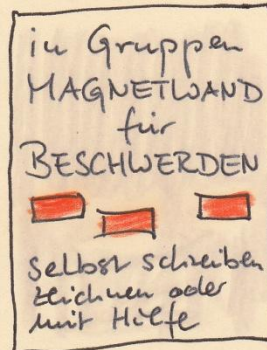 in Gruppen
MAGNETWAND
für
BESCHWERDEN
selbst schreiben
zeichnen oder
mit Hilfe